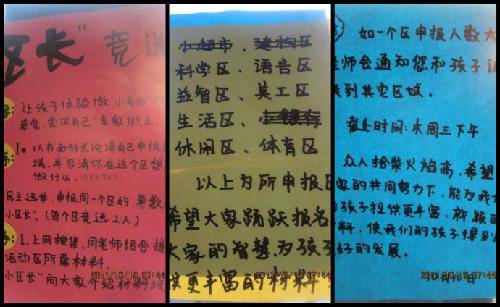 区长"竞选
让孩子体验做"小老师"的
感觉,尝试自己"当家做主"
1。以书面形式说清自己申报区
域,并写清你在这个区想
做什么。
民主选举,申报同一个区的票数
小区长"。(每个区竞选2人)
1.上网搜集,同老师结合
活动区所属材料。
小区长"向大家介绍材料
小超市、建构区
科学区、语言区
益智区、美工区
生活区、
休闲区、体育区
以上为所申报区
希望大家踊跃报名
大家的智慧,为孩子
供更丰富的材料
如一个区申报人数大
师会通知您和孩子
到其它区域。
截止时间:本周三下午
众人拾柴火焰高,希望
家的共同努力下,能为我
孩子提供更丰富、
料,使我们的孩子得到
好的发展。